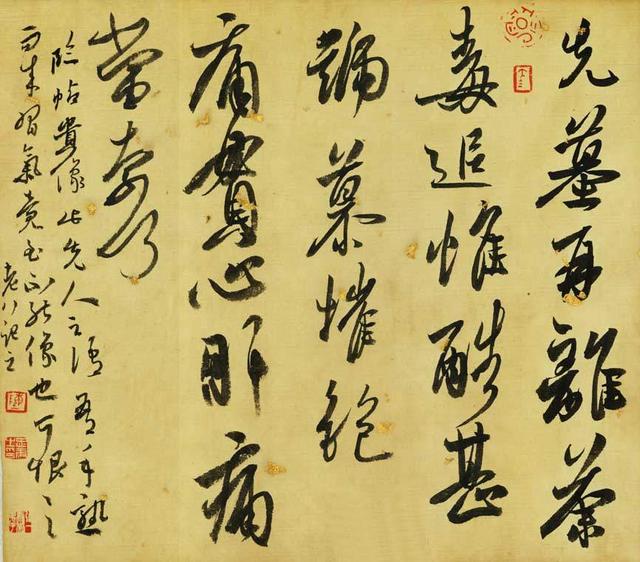 先墓再離荼
毒追惟酷甚
號慕摧絕
痛貫心肝痛
當奈何
臨帖貴像此先人之語吾手熟
習氣竟至不能像也可恨
老八記之